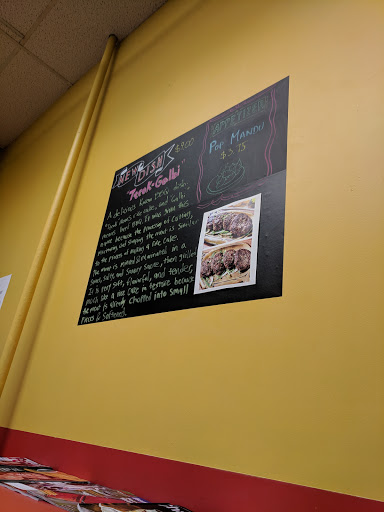 NEW DISH $9.00
"Terak-Galbi"
A delicious Korean beef dish,
"Terak" means rice cake, and "Galbi"
means beef ribs. It was given this
name because the processing of cutting,
marinating and shaping the meat is similar
to the process of making a rice cake.
The meat is minced & marinated in a
sweet, salty and savory sauce, then grilled.
It is very soft, flavorful, and tender,
much like a rice cake in texture because
the meat is already chopped into small
pieces & softened.
APPETIZER
Pop Mandu
$3.75